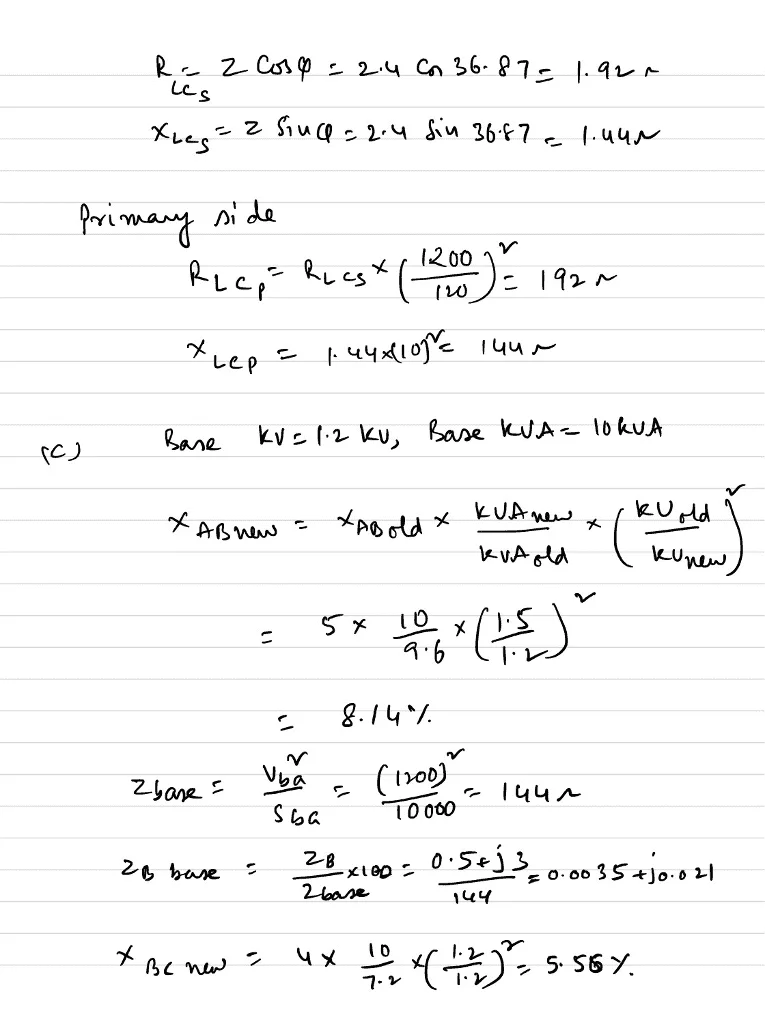 R_LCs = Z Cos φ = 2.4 Cos 36.87 = 1.92 Ω
X_LCs = Z Sin φ = 2.4 Sin 36.87 = 1.44 Ω
Primary side
R_LCp = R_LCs × (1200/120)² = 192 Ω
X_LCp = 1.44×(10)² = 144 Ω
(C) Base KV = 1.2 KV, Base KVA = 10 KVA
X_AB new = X_AB old × KVA new/KVA old × (KV old/KV new)²
= 5 × 10/9.6 × (1.5/1.2)²
= 8.14 %
Zbase = Vba²/Sba = (1200)²/10000 = 144 Ω
Z_B base = ZB/Zbase ×100 = 0.5+j3/144 = 0.0035 + j0.021
X_BC new = 4 × 10/7.2 × (1.2/1.2)² = 5.56 %.